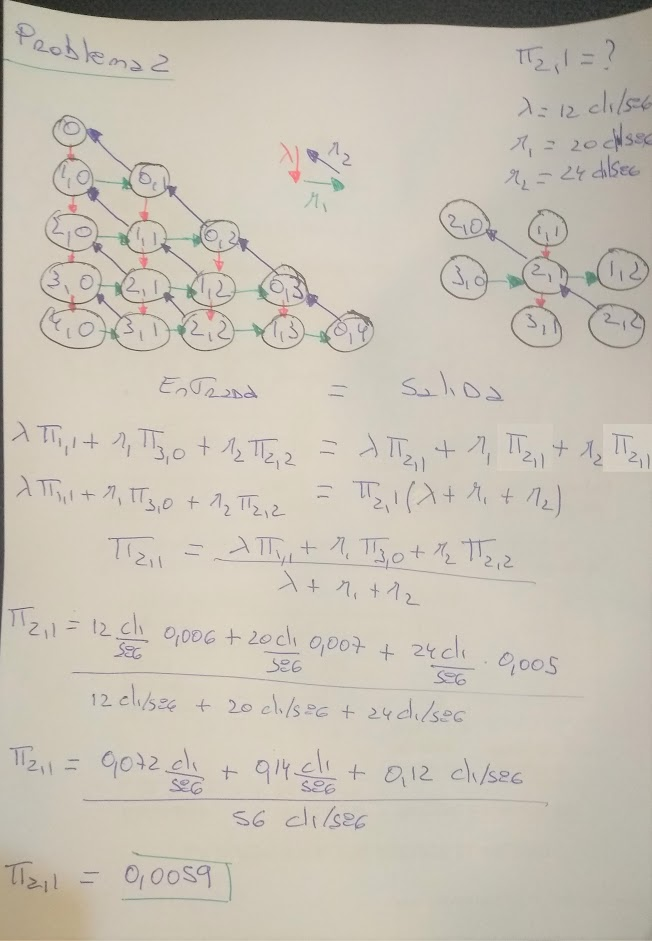 Problema 2
π2,1 = ?
λ = 12 cli/seg
μ1 = 20 cli/seg
μ2 = 24 cli/seg
0
1,0 0,1
2,0 1,1 0,2
3,0 2,1 1,2 0,3
4,0 3,1 2,2 1,3 0,4
λ μ2
μ1
2,0 1,1
3,0 2,1 1,2
3,1 2,2
Entrada = Salida
λ π1,1 + μ1 π3,0 + μ2 π2,2 = λ π2,1 + μ1 π2,1 + μ2 π2,1
λ π1,1 + μ1 π3,0 + μ2 π2,2 = π2,1 (λ + μ1 + μ2)
π2,1 = λ π1,1 + μ1 π3,0 + μ2 π2,2
λ + μ1 + μ2
π2,1 = 12 cli/seg 0,006 + 20 cli/seg 0,007 + 24 cli/seg · 0,005
12 cli/seg + 20 cli/seg + 24 cli/seg
π2,1 = 0,072 cli/seg + 0,14 cli/seg + 0,12 cli/seg
56 cli/seg
π2,1 = 0,0059